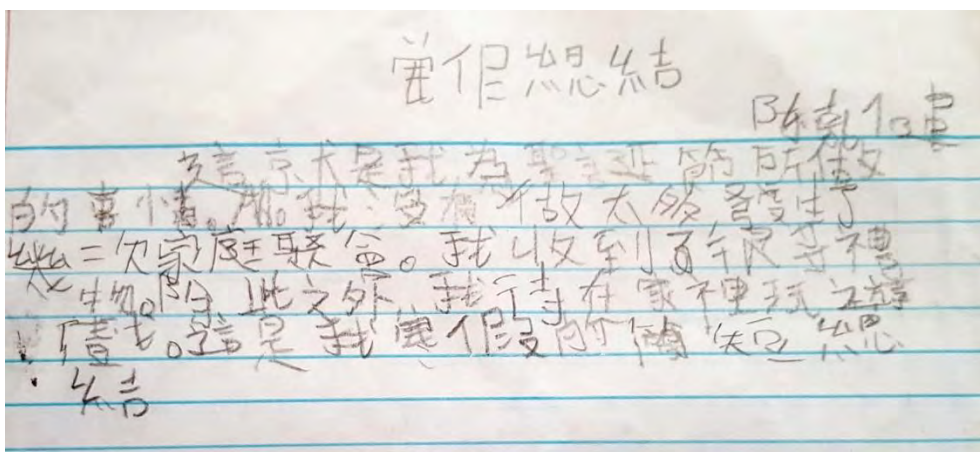 寒假總結
陳
這就是我為聖誕節所做
的事情。我沒有做太多
幾次家庭聚會。我收到了很多禮
物。除此之外,我待在家裡玩遊
戲。這是我寒假的簡短總
結